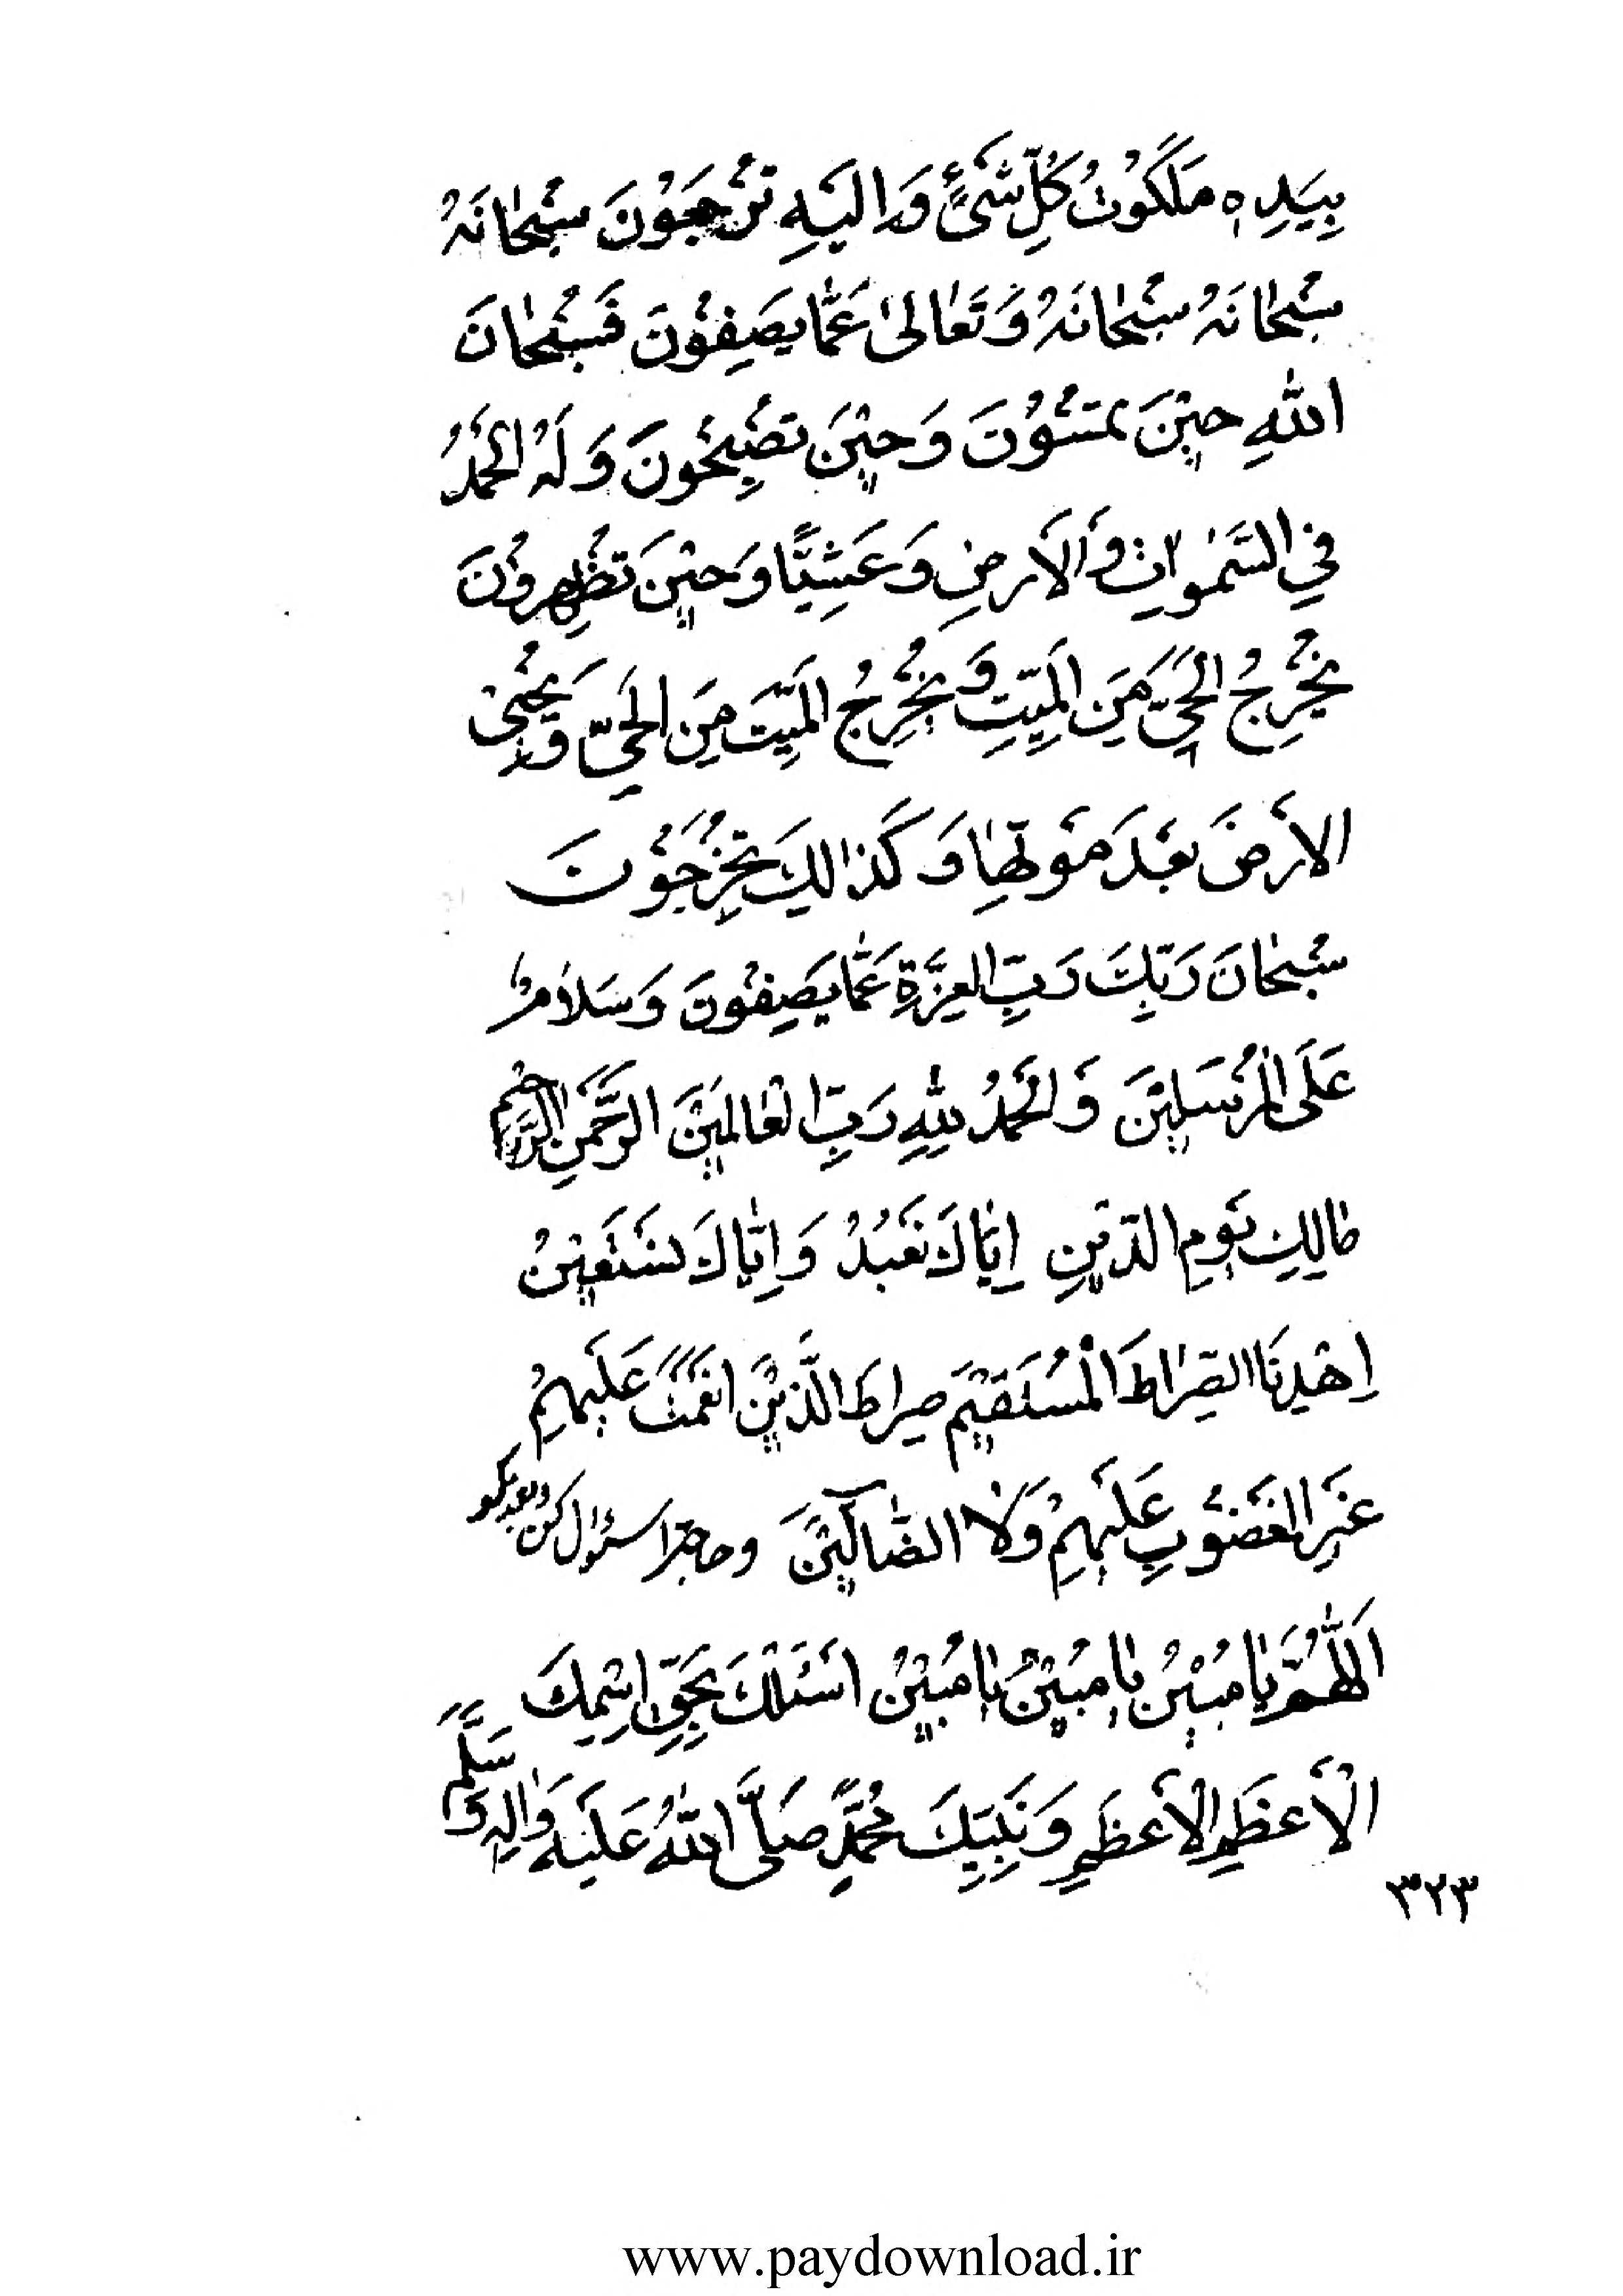 بِيَدِهِ مَلَكُوتُ كُلِّ شَىْءٍ وَ اِلَيْهِ تُرْجَعُوْنَ سُبْحٰانَهُ
سُبْحٰانَهُ سُبْحٰانَهُ وَ تَعٰالىٰ عَمّٰا يَصِفُوْنَ فَسُبْحٰانَ
اللهِ حِيْنَ تُمْسُوْنَ وَ حِيْنَ تُصْبِحُونَ وَ لَهُ الْحَمْدُ
فِي السَّمٰواتِ وَ الْاَرْضِ وَ عَشِيًّا وَ حِيْنَ تُظْهِرُوْنَ
يُخْرِجُ الْحَيَّ مِنَ الْمَيِّتِ وَ يُخْرِجُ الْمَيِّتَ مِنَ الْحَيِّ وَ يُحْيِىْ
الْاَرْضَ بَعْدَ مَوْتِهٰا وَ كَذٰالِكَ تُخْرَجُوْنَ
سُبْحٰانَ رَبِّكَ رَبِّ الْعِزَّةِ عَمّٰا يَصِفُوْنَ وَ سَلاٰمٌ
عَلَى الْمُرْسَلِيْنَ وَ الْحَمْدُ لِلّٰهِ رَبِّ الْعٰالَمِيْنَ الرَّحْمٰنِ الرَّحِيْمِ
مٰالِكِ يَوْمِ الدِّيْنِ اِيّٰاكَ نَعْبُدُ وَ اِيّٰاكَ نَسْتَعِيْنُ
اِهْدِنَا الصِّرٰاطَ الْمُسْتَقِيْمَ صِراطَ الَّذِيْنَ اَنْعَمْتَ عَلَيْهِمْ
غَيْرِ الْمَغْضُوْبِ عَلَيْهِمْ وَلَا الضّٰآلِّيْنَ و حاجترا سئوال كن و بعد بگو
اَللّٰهُمَّ يٰا مُبِيْنُ يٰا مُبِيْنُ يٰا مُبِيْنُ اَسْئَلُكَ بِحَقِّ اِسْمِكَ
الْاَعْظَمِ الْاَعْظَمِ وَ نَبِيِّكَ مُحَمَّدٍ صَلَّى اللهُ عَلَيْهِ وَ اٰلِهِ وَ سَلَّمَ
٣٢٣
www.paydownload.ir